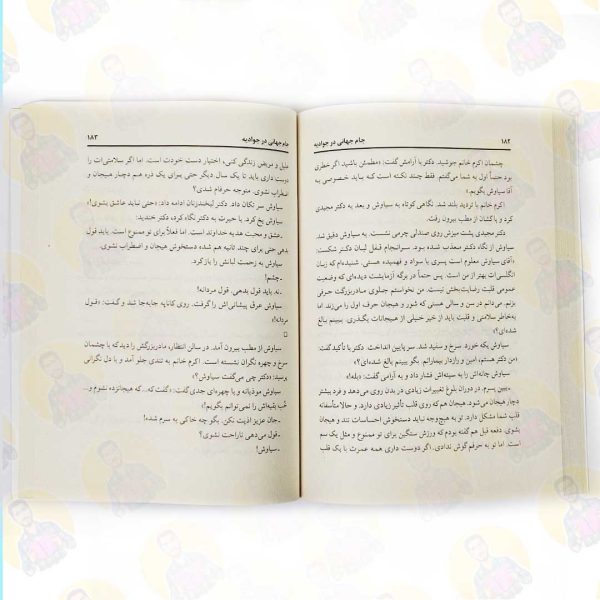 ۱۸۲ جام جهانی در جوادیه
چشمان اکرم خانم جوشید. دکتر با آرامش گفت: «مطمئن باشید اگر خطری
بود حتماً اول به شما می‌گفتم. فقط چند نکته است که باید خصوصی به
آقا سیاوش بگویم.»
اکرم خانم با تردید بلند شد. نگاهی کوتاه به سیاوش و بعد به دکتر مجیدی
کرد و پاکشان از مطب بیرون رفت.
دکتر مجیدی پشت میزش روی صندلی چرمی نشست. به سیاوش دقیق شد.
سیاوش از نگاه دکتر معذب شده بود. سرانجام قفل لبان دکتر شکست:
«آقای سیاوش معلوم است پسری با سواد و فهمیده هستی. شنیده‌ام که زبان
انگلیسی‌ات بهتر از من است. پس حتماً در برگه آزمایشت دیده‌ای که وضعیت
عمومی قلبت رضایت‌بخش نیست. من نخواستم جلوی مادربزرگت حرفی
بزنم. می‌دانم در سن و سالی هستی که شور و هیجان حرف اول را می‌زند اما
به‌خاطر سلامتی و قلبت باید از خیر خیلی از هیجانات بگذری. ببینم بالغ
شده‌ای؟»
سیاوش یکه خورد. سرخ و سفید شد. سر پایین انداخت. دکتر با تأکید گفت:
«من دکتر هستم، امین و رازدار بیمارانم. بگو ببینم بالغ شده‌ای؟»
سیاوش چانه‌اش را به سینه‌اش فشار داد و به آرامی گفت: «بله!»
ـ ببین پسرم. در دوران بلوغ تغییرات زیادی در بدن روی می‌دهد و فرد بیشتر
دچار هیجان می‌شود. هیجان هم که روی قلب تأثیر زیادی دارد. و حالا متأسفانه
قلب شما مشکل دارد. تو به هیچ‌وجه نباید دستخوش احساسات تند و هیجان
بشوی. دفعه قبل هم گفته بودم که ورزش سنگین برای تو ممنوع و مثل یک سم
است. اما تو به حرفم گوش ندادی. اگر دوست داری همه عمرت با یک قلب
جام جهانی در جوادیه ۱۸۳
علیل و مریض زندگی کنی، اختیار دست خودت است. اما اگر سلامتی‌ات را
دوست داری باید تا یک سال دیگر حتی برای یک ذره هم دچار هیجان و
اضطراب نشوی. متوجه حرفم شدی؟
سیاوش سر تکان داد. دکتر لبخندزنان ادامه داد: «حتی نباید عاشق بشوی!»
سیاوش یخ کرد. با حیرت به دکتر نگاه کرد. دکتر خندید:
ـ عشق و محبت هدیه خداوند است. اما فعلاً برای تو ممنوع است. باید قول
بدهی حتی برای چند ثانیه هم شده دستخوش هیجان و اضطراب نشوی.
سیاوش به زحمت لبانش را باز کرد.
ـ چشم!
ـ نه. باید قول بدهی. قول مردانه!
سیاوش عرق پیشانی‌اش را گرفت. روی کاناپه جابه‌جا شد و گفت: «قول
مردانه!»
□
سیاوش از مطب بیرون آمد. در سالن انتظار، مادربزرگش را دید که با چشمان
سرخ و چهره نگران نشسته است. اکرم خانم به تندی جلو آمد و با دل نگرانی
پرسید: «دکتر چی می‌گفت سیاوش؟»
سیاوش موذیانه و با چهره‌ای جدی گفت: «گفت که... که هیجانزده نشوم و ...
خُب بقیه‌اش را نمی‌توانم بگویم!»
ـ جان عزیز اذیت نکن. بگو چه خاکی به سرم شده!
ـ قول می‌دهی ناراحت نشوی؟
ـ سیاوش!